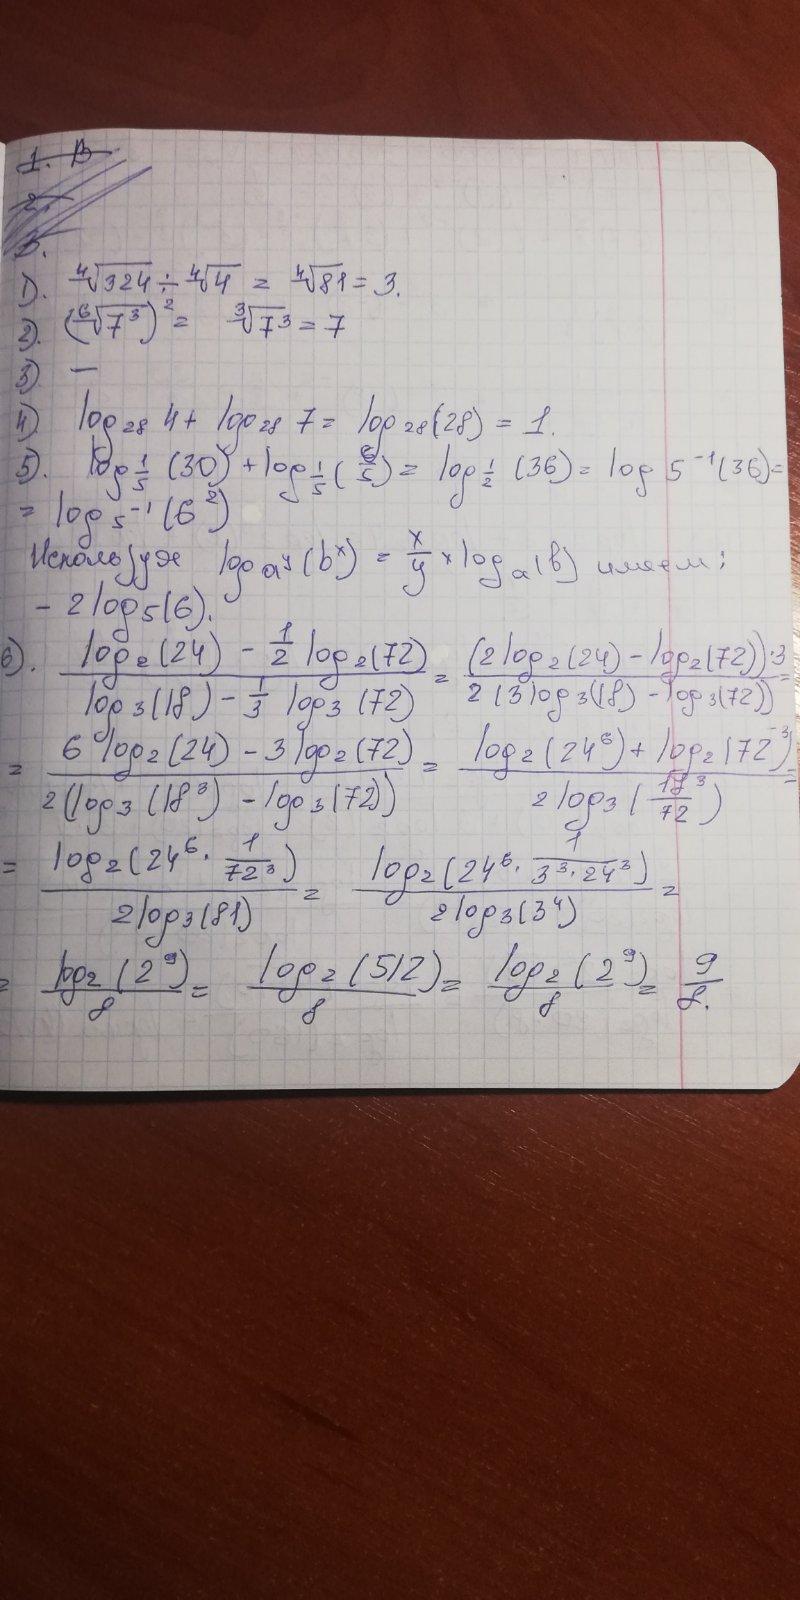 1. В
2.
3.
1). ⁴√324 ÷ ⁴√4 = ⁴√81 = 3.
2). (⁶√7³)² = ³√7³ = 7
3) —
4) log₂₈ 4 + log₂₈ 7 = log₂₈(28) = 1.
5). log_{1/5} (30) + log_{1/5} (6/5) = log_{1/2} (36) = log 5⁻¹(36) =
= log_{5⁻¹} (6²)
Используя log_{a^y}(b^x) = x/y × log_a(b) имеем:
- 2 log₅(6).
6). (log₂(24) - 1/2 log₂(72)) / (log₃(18) - 1/3 log₃(72)) = ((2 log₂(24) - log₂(72))·3) / (2(3 log₃(18) - log₃(72))) =
= (6 log₂(24) - 3 log₂(72)) / (2(log₃(18³) - log₃(72))) = (log₂(24⁶) + log₂(72⁻³)) / (2 log₃(18³/72)) =
= log₂(24⁶ · 1/72³) / 2 log₃(81) = log₂(24⁶ · 1/(3³·24³)) / 2 log₃(3⁴) =
= log₂(2⁹) / 8 = log₂(512) / 8 = log₂(2⁹) / 8 = 9/8.